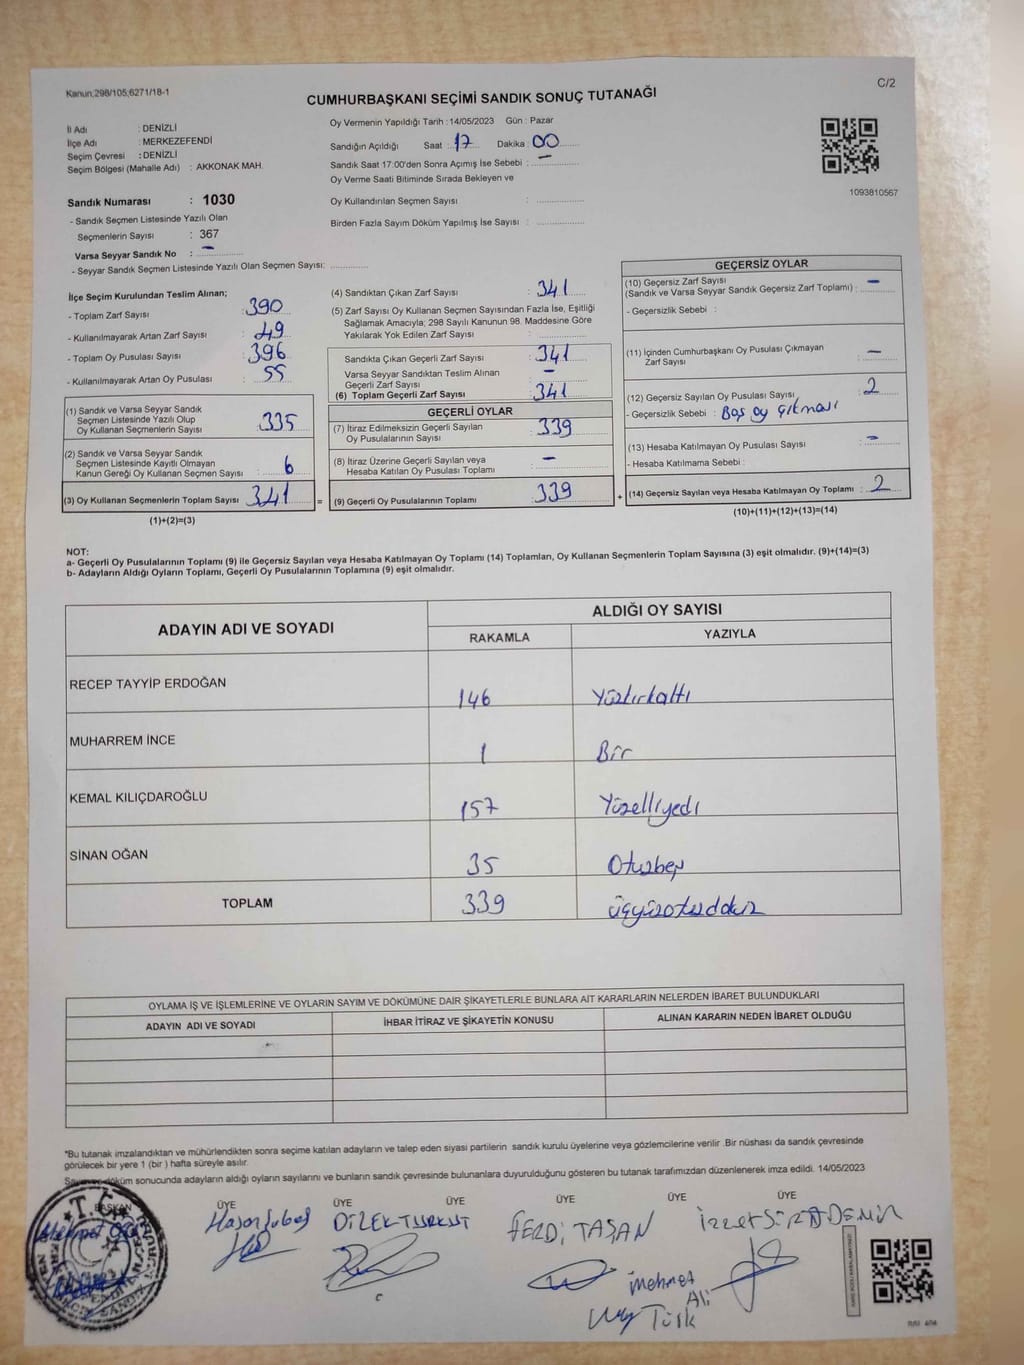 Kanun:298/105;6271/18-1
C/2
CUMHURBAŞKANI SEÇİMİ SANDIK SONUÇ TUTANAĞI
İl Adı : DENİZLİ
İlçe Adı : MERKEZEFENDİ
Seçim Çevresi : DENİZLİ
Seçim Bölgesi (Mahalle Adı) : AKKONAK MAH.
Oy Vermenin Yapıldığı Tarih : 14/05/2023 Gün : Pazar
Sandığın Açıldığı Saat : 17 Dakika : 00
Sandık Saat 17:00'den Sonra Açımış İse Sebebi : —
Oy Verme Saati Bitiminde Sırada Bekleyen ve
Oy Kullandırılan Seçmen Sayısı :
Birden Fazla Sayım Döküm Yapılmış İse Sayısı :
1093810567
Sandık Numarası : 1030
- Sandık Seçmen Listesinde Yazılı Olan
Seçmenlerin Sayısı : 367
Varsa Seyyar Sandık No : —
- Seyyar Sandık Seçmen Listesinde Yazılı Olan Seçmen Sayısı:
İlçe Seçim Kurulundan Teslim Alınan;
- Toplam Zarf Sayısı : 390
- Kullanılmayarak Artan Zarf Sayısı : 49
- Toplam Oy Pusulası Sayısı : 396
- Kullanılmayarak Artan Oy Pusulası : 55
(1) Sandık ve Varsa Seyyar Sandık
Seçmen Listesinde Yazılı Olup
Oy Kullanan Seçmenlerin Sayısı : 335
(2) Sandık ve Varsa Seyyar Sandık
Seçmen Listesinde Kayıtlı Olmayan
Kanun Gereği Oy Kullanan Seçmen Sayısı : 6
(3) Oy Kullanan Seçmenlerin Toplam Sayısı : 341
(1)+(2)=(3)
=
(4) Sandıktan Çıkan Zarf Sayısı : 341
(5) Zarf Sayısı Oy Kullanan Seçmen Sayısından Fazla İse, Eşitliği
Sağlamak Amacıyla; 298 Sayılı Kanunun 98. Maddesine Göre
Yakılarak Yok Edilen Zarf Sayısı :
Sandıkta Çıkan Geçerli Zarf Sayısı : 341
Varsa Seyyar Sandıktan Teslim Alınan
Geçerli Zarf Sayısı : —
(6) Toplam Geçerli Zarf Sayısı : 341
GEÇERLİ OYLAR
(7) İtiraz Edilmeksizin Geçerli Sayılan
Oy Pusulalarının Sayısı : 339
(8) İtiraz Üzerine Geçerli Sayılan veya
Hesaba Katılan Oy Pusulası Toplamı : —
(9) Geçerli Oy Pusulalarının Toplamı : 339
+
GEÇERSİZ OYLAR
(10) Geçersiz Zarf Sayısı
(Sandık ve Varsa Seyyar Sandık Geçersiz Zarf Toplamı) : —
- Geçersizlik Sebebi :
(11) İçinden Cumhurbaşkanı Oy Pusulası Çıkmayan
Zarf Sayısı : —
(12) Geçersiz Sayılan Oy Pusulası Sayısı : 2
- Geçersizlik Sebebi : Boş oy çıkması
(13) Hesaba Katılmayan Oy Pusulası Sayısı : —
- Hesaba Katılmama Sebebi :
(14) Geçersiz Sayılan veya Hesaba Katılmayan Oy Toplamı : 2
(10)+(11)+(12)+(13)=(14)
NOT:
a- Geçerli Oy Pusulalarının Toplamı (9) ile Geçersiz Sayılan veya Hesaba Katılmayan Oy Toplamı (14) Toplamları, Oy Kullanan Seçmenlerin Toplam Sayısına (3) eşit olmalıdır. (9)+(14)=(3)
b- Adayların Aldığı Oyların Toplamı, Geçerli Oy Pusulalarının Toplamına (9) eşit olmalıdır.
ADAYIN ADI VE SOYADI
ALDIĞI OY SAYISI
RAKAMLA YAZIYLA
RECEP TAYYİP ERDOĞAN 146 Yüzkırkaltı
MUHARREM İNCE 1 Bir
KEMAL KILIÇDAROĞLU 157 Yüzelliyedi
SİNAN OĞAN 35 Otuzbeş
TOPLAM 339 üçyüzotuzdokuz
OYLAMA İŞ VE İŞLEMLERİNE VE OYLARIN SAYIM VE DÖKÜMÜNE DAİR ŞİKAYETLERLE BUNLARA AİT KARARLARIN NELERDEN İBARET BULUNDUKLARI
ADAYIN ADI VE SOYADI İHBAR İTİRAZ VE ŞİKAYETİN KONUSU ALINAN KARARIN NEDEN İBARET OLDUĞU
*Bu tutanak imzalandıktan ve mühürlendikten sonra seçime katılan adayların ve talep eden siyasi partilerin sandık kurulu üyelerine veya gözlemcilerine verilir .Bir nüshası da sandık çevresinde
görülecek bir yere 1 (bir ) hafta süreyle asılır.
döküm sonucunda adayların aldığı oyların sayılarını ve bunların sandık çevresinde bulunanlara duyurulduğunu gösteren bu tutanak tarafımızdan düzenlenerek imza edildi. 14/05/2023
BAŞKAN ÜYE ÜYE ÜYE ÜYE ÜYE ÜYE
Mehmet
DİLEK TURKUT
FERDİ TAŞAN
Mehmet
Ali
Türk
T.C.